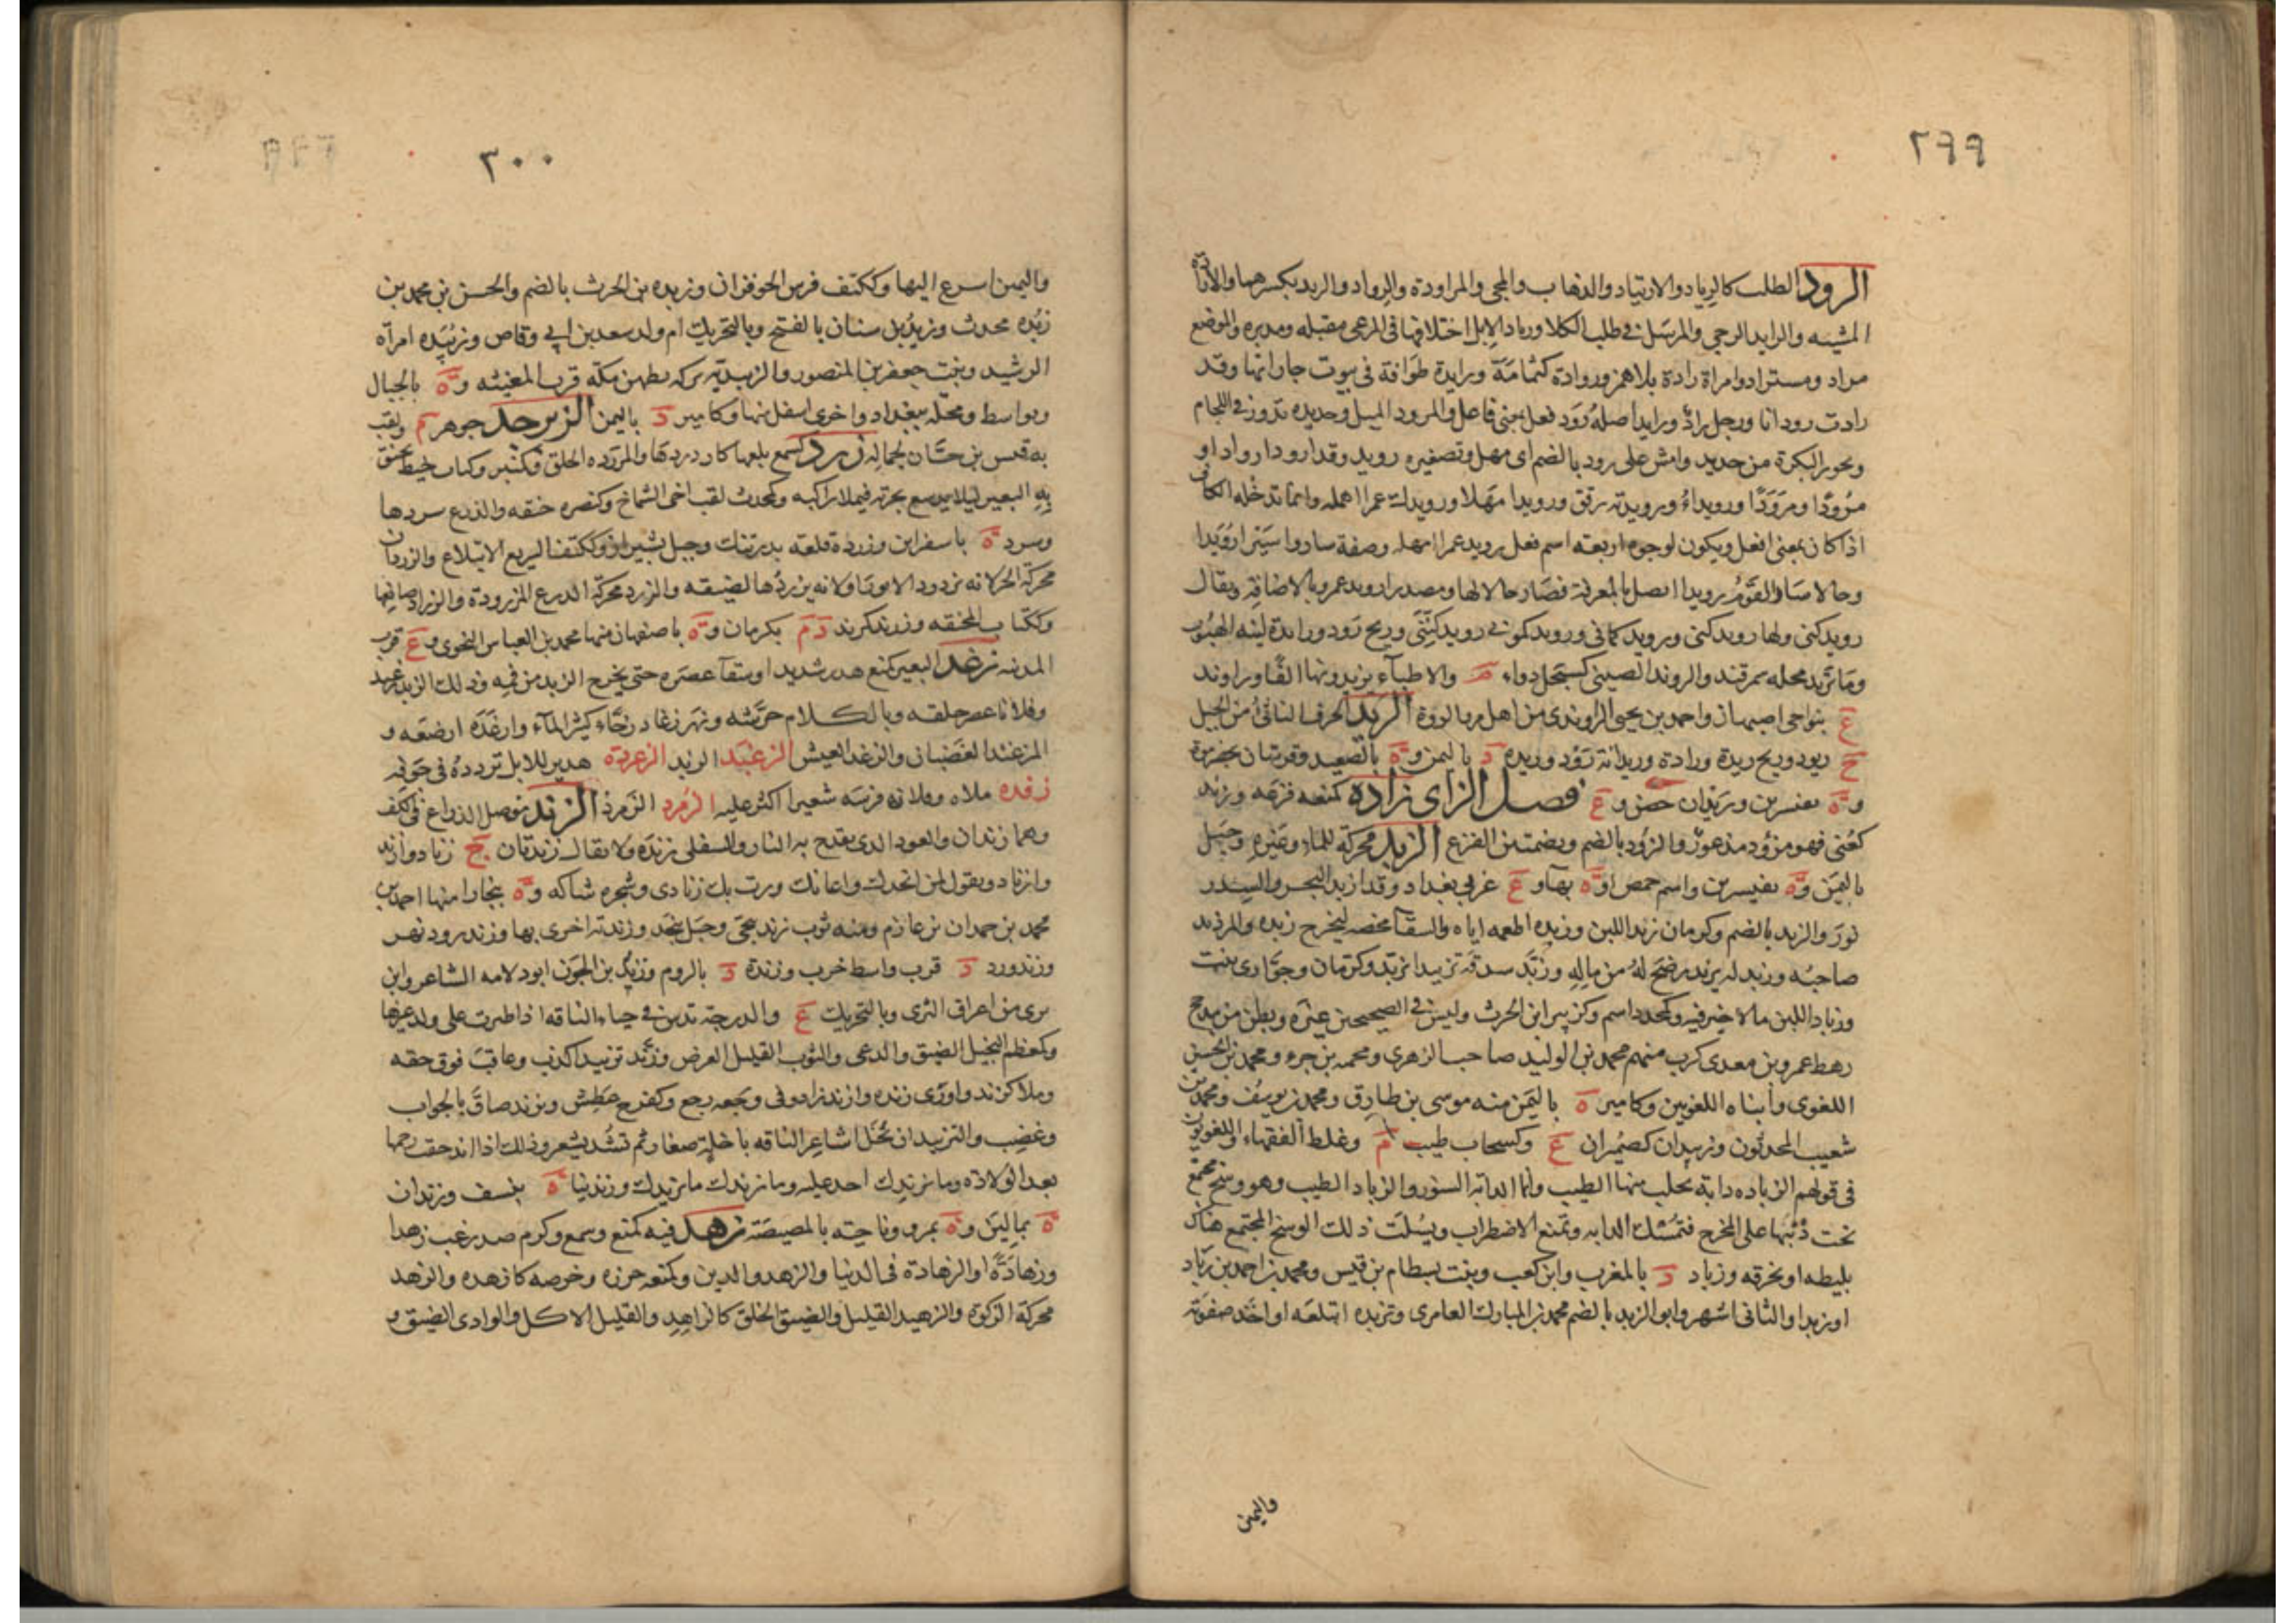 ٢٩٩
الرود الطلب كالرياد والارتياد والذهاب والمجى والمراودة والرواد والريد بكسرهما والاناة
المشيه والرايد الرحى والمرسل فى طلب الكلا ورياد الابل اختلافها فى المرعى مقبله ومدبره والموضع
مراد ومستراد وامراة رادة بلا همز ورواده كثمامة ورايدة طوافة فى بيوت جاراتها وقد
رادت رودانا ورجل راد ورايد اصله رود فعل بمعنى فاعل والمرود الميل وحديده تدور فى اللجام
ومحور البكرة من حديد وامش على رود بالضم اى مهل وتصغيره رويد وقد ارود ارواد او
مرودا ومرودا ورويداء ورويدية برفق ورويدا مهلا ورويدك عمرا امهله وانما تدخله الكاف
اذا كان بمعنى افعل ويكون لوجوه اربعه اسم فعل رويد عمرا امهله وصفة ساروا سيرا رويدا
وحالا سار القوم رويدا اتصل بالمعرفة فصار حالا لها ومصدرا رويد عمرو بالاضافة ويقال
رويدكنى ولها رويدكنى ورويدكمانى ورويدكمونى رويدكننى وريح رود ورادة لينه الهبوب
وماتريد محله بسمرقند والروند الصينى كسبحل دواء م والاطباء يزيدونها الفا وراوند
ع بنواحى اصبهان واحمد بن يحيى الراوندى من اهل مرو الروذ الريد الحرف الناتى من الجبل
ج ريود وريح ريدة ورادة وريدانة رود وريده د باليمن و ة بالصعيد وقريتان بحضرموت
و ة بقنسرين وريدان حصن و ع فصل الزاى زاده كمنعه فزعه وزئد
كعنى فهو مزؤد مذعور والزؤد بالضم وبضمتين الفزع الزبد محركة للماء وغيره وجبل
باليمن و ة بقنسرين واسم حمص او ة بها و ع غربى بغداد وقد ازبد البحر والسدر
نور والزبد بالضم وكرمان زبد اللبن وزبده اطعمه اياه والسقا مخضه ليخرج زبده والمزبد
صاحبه وزبد له يزبد رضخ له من ماله وزبد شدقه تزبيدا تزبد وكرمان وحوارى نبت
وزباد اللبن ما لا خير فيه وكمحدد اسم وكزبير ابن الحرث وليس فى الصحيحين غيره وبطن من مذحج
رهط عمرو بن معدى كرب منهم محمد بن الوليد صاحب الزهرى ومحمه بن جزء ومحمد بن الحسين
اللغوى وابناه اللغويين وكامير ة باليمن منه موسى بن طارق ومحمد بن يوسف ومحمد بن
شعيب المحدثون وزبيدان كضميران ع وكسحاب طيب م وغلط الفقهاء واللغويون
فى قولهم الزباده دابة يحلب منها الطيب وانما الدابة السنور والزباد الطيب وهو وسخ مجتمع
تحت ذنبها على المخرج فتمسك الدابه وتمنع الاضطراب ويسلت ذلك الوسخ المجتمع هناك
بليطه او بخرقه وزباد د بالمغرب وابن كعب وبنت بسطام بن قيس ومحمد بن احمد بن زباد
او زبدا والثانى اشهر وابو الزبد بالضم محمد بن المبارك العامرى وتزبده ابتلعه او اخذ صفوته
واليمن
٣٠٠
واليمين اسرع اليها وككتف فرس الحوفزان وزبده بن الحرث بالضم والحسن بن محمد بن
زبده محدث وزبد بل سنان بالفتح وبالتحريك ام ولد سعد بن ابى وقاص وزبيده امراة
الرشيد وبنت جعفر بن المنصور والزبيدية بركه بطهرن مكه قرب المغيثه و ة بالجبال
وبواسط ومحله ببغداد واخرى اسفل منها وكامير د باليمن الزبرجد جوهر م ولقب
به قيس بن حسان لجماله زرد كسمع بلعها كازدردها والمزرده الحلق وكمنبر وكتاب خيط يخنق
به البعير ليلا يدسع بجرته فيملا راكبه وكمحدث لقب اخى الشماخ وكنصره خنقه والدرع سردها
وسرد ة باسفراين وزردة قلعة بدرتنك وجبل بشيراز وككتف السريع الابتلاع والزردان
محركة الحر لانه يزدرد الايور او لانه يزردها لضيقه والزرد محركة الدرع المزرودة والزراد صانعها
وككتاب المخنقه وزرند كمرند د م بكرمان و ة باصفهان منها محمد بن العباس النحوى و ع قرب
المدينه زغد البعير كمنع هدر شديدا وسقاء عصره حتى يخرج الزبد من فمه وذلك الزبد زغيد
وفلانا عصر حلقه وبالكلام حرشه ونهر زغاد زخار كثير الماء وازغده ارضعه و
المزغئد الغضبان والزغد العيش الزغبد الزبد الزغردة هدير للابل تردده فى جوفه
زفده ملاه وفلان فرسه شعيرا اكثر عليه الزمرد الزمرذ الزند موصل الذراع فى الكف
وهما زندان والعود الذى يقتدح به النار والسفلى زندة ولا يقال زندتان ج زناد وازند
وازناد وتقول لمن انجدك واعانك ورت بك زنادى وشجره شاكه و ة ببخارا منها احمد بن
محمد بن حمدان بن عازم ومنه ثوب زندنيجى وجبل بنجد وزندنة اخرى بها وزندرود نهر
وزندورد د قرب واسط خرب وزندة د بالروم وزند بن الجون ابو دلامه الشاعر وابن
برى من اعراق الثرى وبالتحريك ع والدرجة تدس فى حياء الناقه اذا ظئرت على ولد غيرها
وكمعظم البخيل الضيق والدعى والثوب القليل العرض وزند تزنيدا كذب وعاقب فوق حقه
وملا كزند واورى زنده وازند زاد وفى وجعه رجع وكفرح عطش وتزند ضاق بالجواب
وغضب والتزنيد ان تخل اشاعر الناقه باخلة صغار ثم تشد بشعر وذلك اذا اندحقت رحمها
بعد الولادة وما يزندك احد عليه وما يزندك ما يزيدك وزندنيا ة بنسف وزندان
ة بمالين و ة بمرو وناحية بالمصيصة زهد فيه كمنع وسمع وكرم ضد رغب زهدا
وزهادة او الزهادة فى الدنيا والزهد والدين وكمنعه حزره وخرصه كازهده والزهد
محركة الزكوة والزهيد القليل والضيق الخلق كالزاهد والقليل الاكل والوادى الضيق و